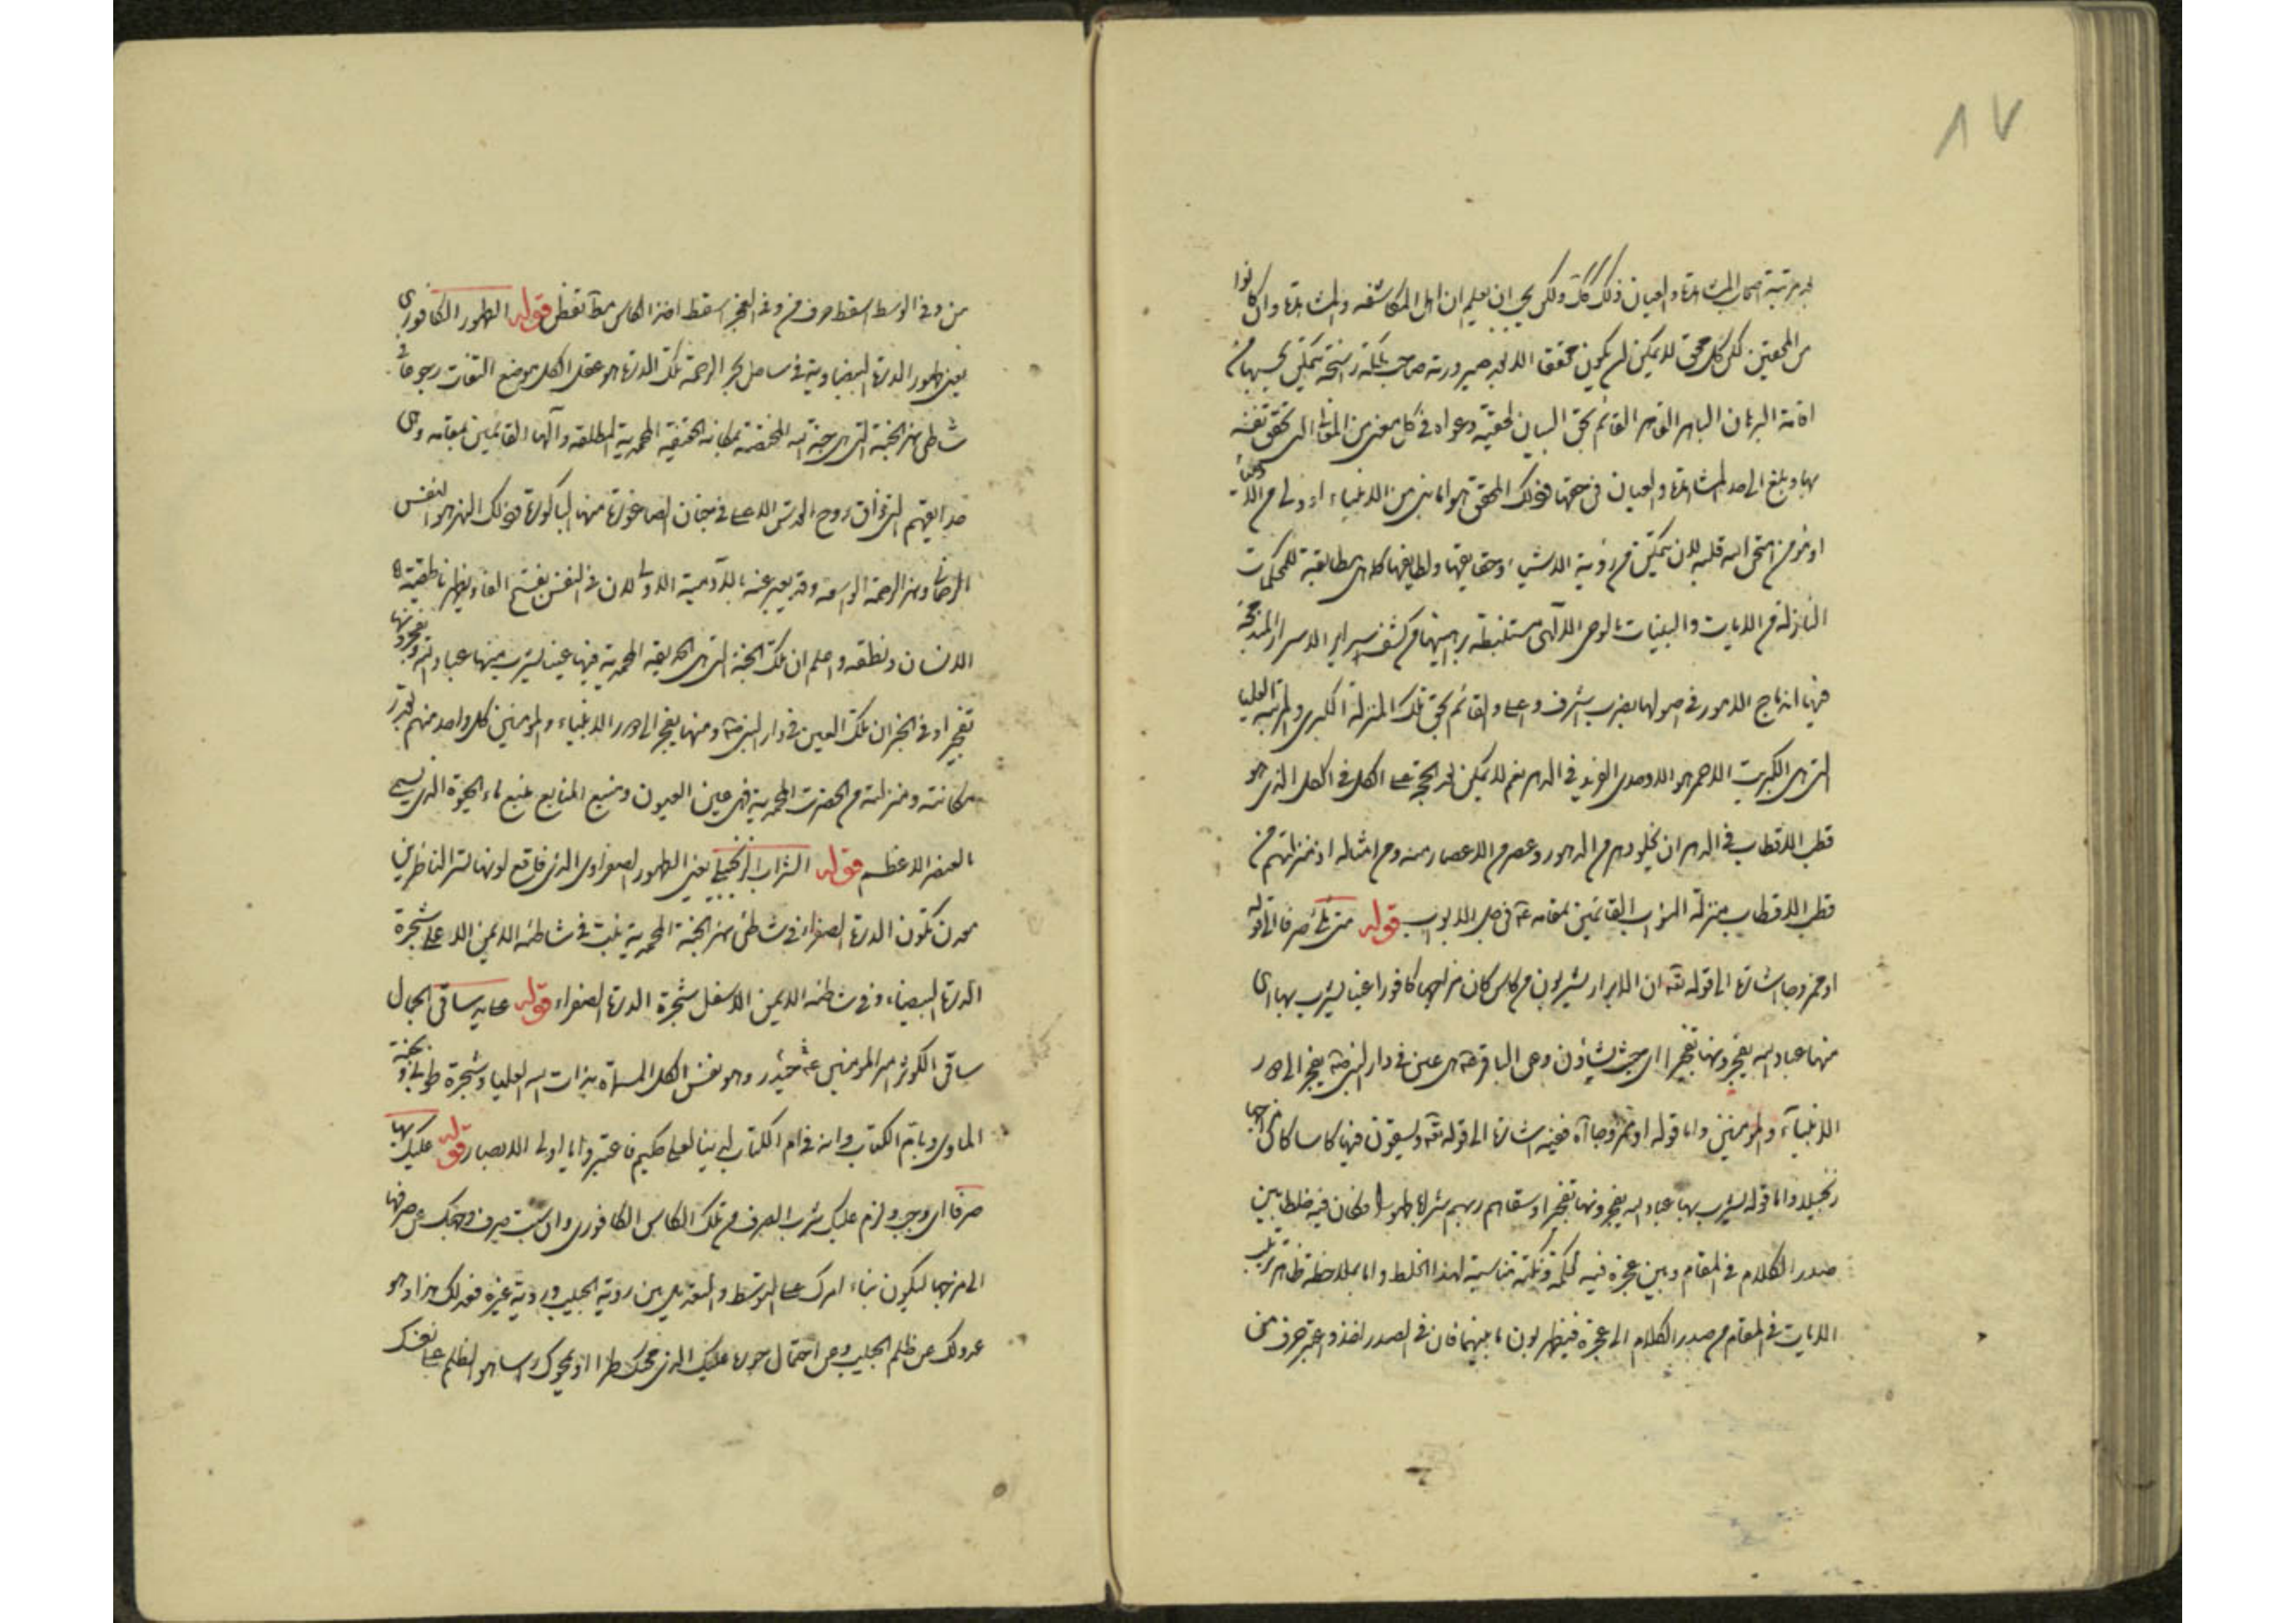 ٨٧
مرتبة اصحاب المشاهدة والعيان ذلك كك ولكن يجب ان يعلم ان اهل المكاشفه والمشاهدة وان كانوا
من المحقين لكن كل محق لا يمكن ان يكون محققا الا بعد صيرورته صاحب ملكة راسخة يتمكن بحسبها من
اقامة البرهان الباهر القاهر القائم بحق البيان لحقية دعواه فى كل معنى من المعانى التى تحقق نفسه
بها وبلغ الى حد المشاهدة والعيان فى حقها فذلك المحقق هو اما نبى من الانبياء او ولى من الاولياء
او مومن امتحن الله قلبه لان يتمكن من رؤية الاشياء وحقايقها ولطايفها كلها هى مطابقة للمحكمات
النازلة من الايات والبينات بالوحى الالهى مستنبطة براهينها من كشف سراير الاسرار المندمجة
فيها اندماج الامور فى اصولها بضرب اشرف واعلى والقائم بحق تلك المنزلة الكبرى والمرتبة العليا
التى هى الكبريت الاحمر هو الاوحدى الفريد فى الدهر نعم لا يمكن لحد الحجة على الكل فى الكل الذى هو
قطب الاقطاب فى الدهر ان يخلو دهر من الدهور وعصر من الاعصار منه ومن امثاله اذ منزلتهم من
قطب الاقطاب بمنزلة النواب القائمين مقامه فى فصل الابواب قوله متى شئت صرفا الى قوله
او ممزوجا اشارة الى قوله تعه ان الابرار يشربون من كاس كان مزاجها كافورا عينا يشرب بها اى
منها عباد الله يفجرونها تفجيرا اى حيث يشاؤن وعن الباقر ع هى عين فى دار النبى ص يفجر الى دور
الانبيآء والمومنين واما قوله او ممزوجا آه ففيه اشارة الى قوله تعه ويسقون فيها كاسا كان مزاجها
زنجبيلا واما قوله يشرب بها عباد الله يفجرونها تفجيرا وسقاهم ربهم شرابا طهورا فكان فيه خلطا بين
صدر الكلام فى المقام وبين عجزه فيه لحكمة ونكتة مناسبة لهذا الخلط واما بملاحظة ظاهر ترتيب
الايات فى المقام من صدر الكلام الى عجزه فيظهر بون ما بينهما فان فى الصدر اخذ واعتبر حرف من
من وفى الوسط اسقط حرف من وفى العجز اسقط اخذ الكاس قوله الطهور الكافورى
يعنى طهور الدرة البيضاوية فى ساحل بحر الرحمة تلك الدرة هو عقل الكل موضع التفات
شاطى نهر الجنة التى هى جنة الله المختصة بمكانه الحقيقة المحمدية المطلقه وآلها القائمين مقامه وهى
حدايقهم التى ذاق روح القدس الاعلى فى جنان الصاغورة منها الباكورة فذلك النهر هو النفس
الرحمانى ونهر الرحمة الواسعه وقد يعبر عنه بالآدمية الاولى لان فى النفس بفتح الفاء يظهر ناطقية
الانسان ونطقه واعلم ان تلك الجنة التى هى الحديقه المحمدية فيها عينا يشرب منها عباد الله يفجرونها
تفجيرا وفى الخبر ان تلك العين فى دار النبى ص ومنها يفجر الى دور الانبياء والمومنين كل واحد منهم بقدر
مكانته ومنزلته من الحضرت المحمدية فهى عين العيون ومنبع المنابع منبع ماء الحيوة الذى يسمى
بالعنصر الاعظم قوله الشراب الزنجبيلى يعنى الطهور الصفراوى الذى فاقع لونها تسر الناظرين
معدن تكون الدرة الصفراء فى شاطى نهر الجنة المحمدية ينبت فى شاطئه الايمن الاعلى شجرة
الدرة البيضاء وفى شاطئه الايمن الاسفل شجرة الدرة الصفراء قوله ساقى الجمال
ساقى الكوثر امير المومنين ع حيدر وهو نفس الكل المسماة بذات الله العليا وشجرة طوبى وجنة
الماوى وباقم الكتاب وانه فى ام الكتاب لدينا لعلى حكيم فاعتبروا يا اولى الابصار قوله عليك بها
صرفا اى وجب ولزم عليك شرب الصرف من تلك الكاس الكافورى وان شئت صرف وجهك عن صرفها
الى مزجها ليكون بناء امرك على التوسط والتعديل بين روية الحبيب وروية غيره فعدلك هذا وهو
عدولك عن ظلم الحبيب وعن احتمال جوره عليك الذى محك طرا او يمحوك راسا هو الظلم على نفسك